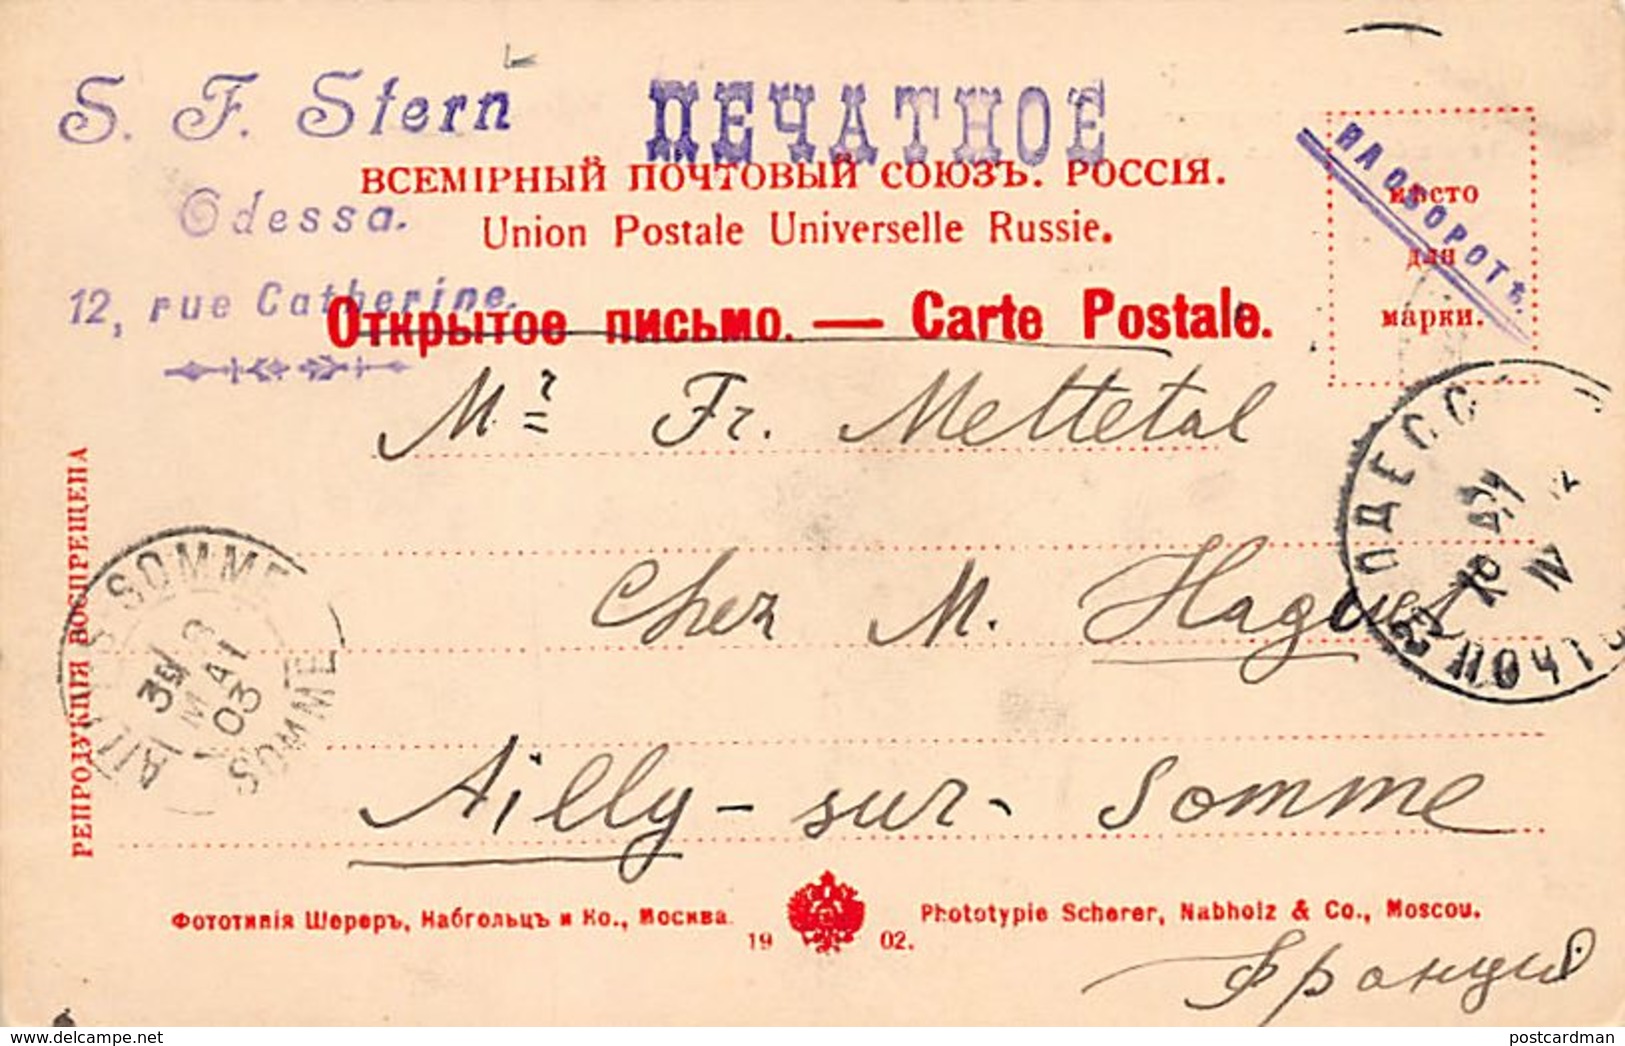 S. F. Stern
ПЕЧАТНОЕ
Odessa.
12, rue Catherine.
НА ОБОРОТѢ.
ВСЕМІРНЫЙ ПОЧТОВЫЙ СОЮЗЪ. РОССІЯ.
Union Postale Universelle Russie.
Открытое письмо. — Carte Postale.
мѣсто
для
марки.
Mr Fr. Mettetal
Chez M. Hague
Ailly-sur-Somme
ОДЕСС
ПОЧТ
SOMME
3E
MAI
03
SOMME
РЕПРОДУКЦІЯ ВОСПРЕЩЕНА
Фототипія Шереръ, Набгольцъ и Ко., Москва.
1902.
Phototypie Scherer, Nabholz & Co., Moscou.
Франція
postcardman